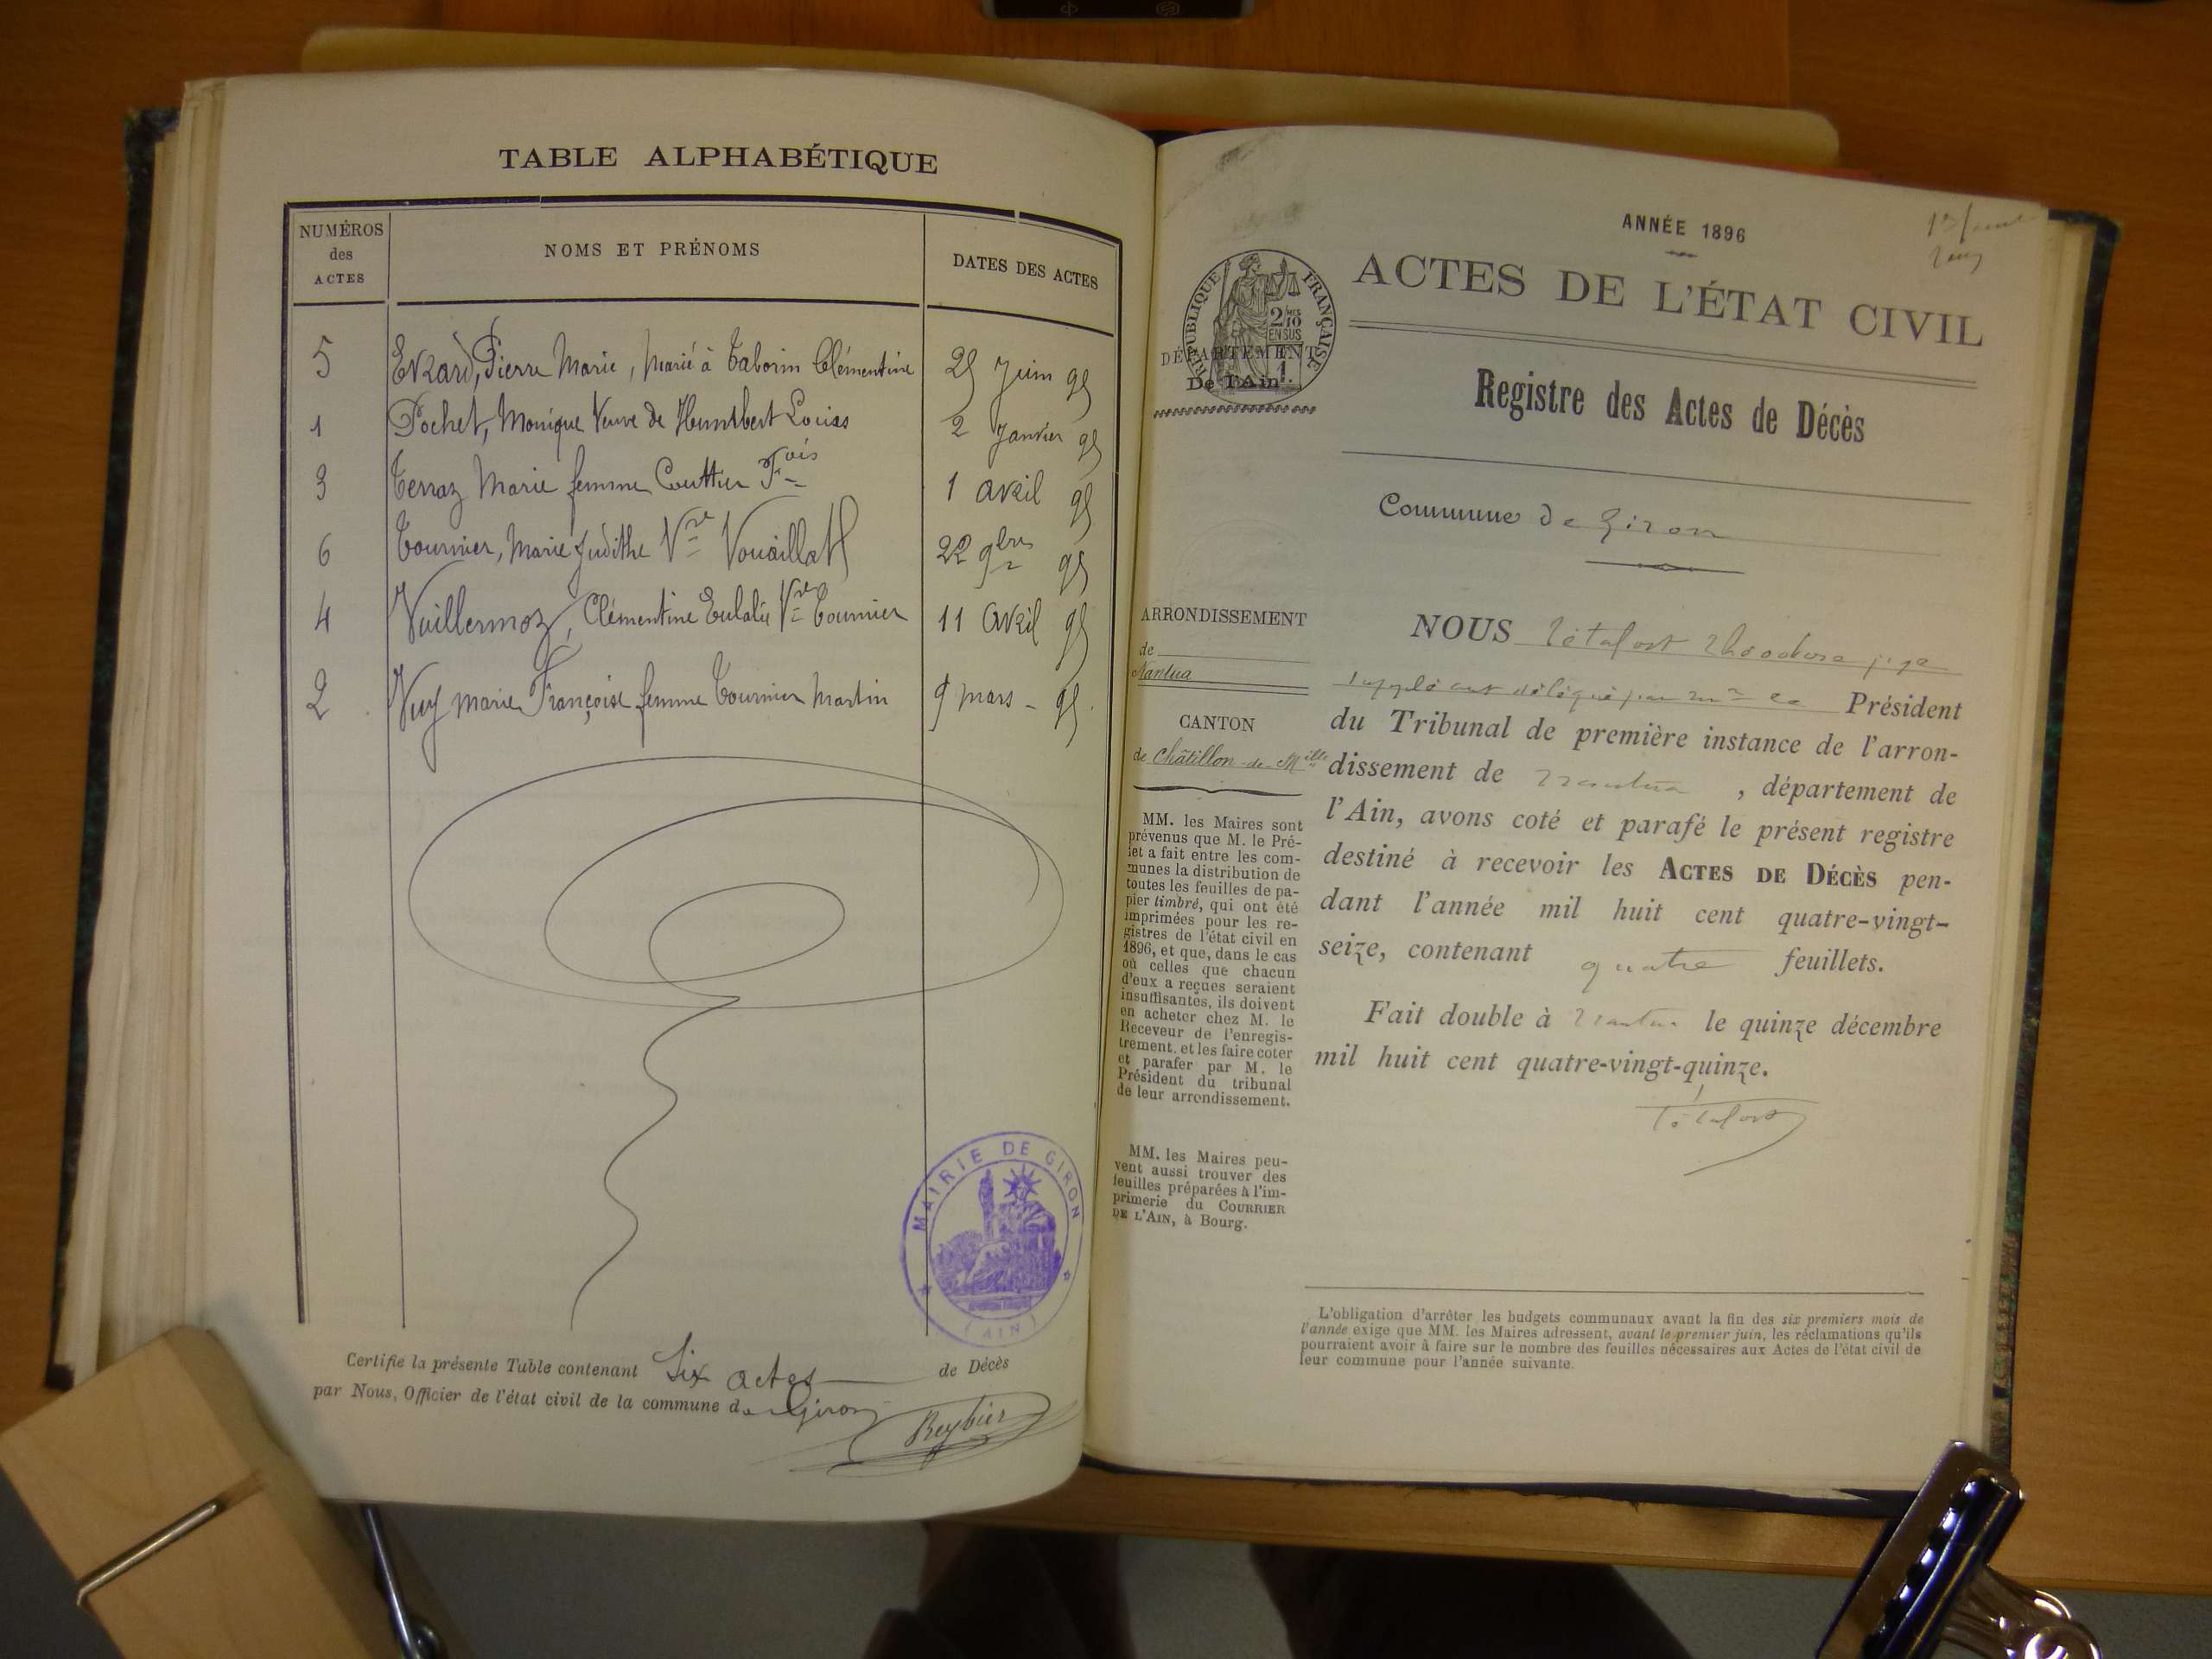 TABLE ALPHABÉTIQUE
NUMÉROS
des
ACTES
NOMS ET PRÉNOMS
DATES DES ACTES
5 Evrard, Pierre Marie, marié à Taborin Clémentine 25 Juin 95
1 Pochet, Monique Veuve de Humbert Louis 2 Janvier 95
3 Terraz Marie femme Couttier Fois 1 avril 95
6 Tournier, Marie Judithe Vve Vouaillat 22 9bre 95
4 Vuillermoz, Clémentine Eulalie Vve Tournier 11 avril 95
2 Vuy marie Françoise femme Tournier Martin 9 mars - 95
MAIRIE DE GIRON
(AIN)
Certifie la présente Table contenant Six actes de Décès
par Nous, Officier de l'état civil de la commune de Giron
Reybier
ANNÉE 1896
ACTES DE L'ÉTAT CIVIL
RÉPUBLIQUE FRANÇAISE
2/10
EN SUS
DÉPARTEMENT
De l'Ain
Registre des Actes de Décès
Commune de Giron
ARRONDISSEMENT
de
Nantua
CANTON
de Châtillon-de-Mille
MM. les Maires sont
prévenus que M. le Pré-
fet a fait entre les com-
munes la distribution de
toutes les feuilles de pa-
pier timbré, qui ont été
imprimées pour les re-
gistres de l'état civil en
1896, et que, dans le cas
où celles que chacun
d'eux a reçues seraient
insuffisantes, ils doivent
en acheter chez M. le
Receveur de l'enregis-
trement, et les faire coter
et parafer par M. le
Président du tribunal
de leur arrondissement.
MM. les Maires peu-
vent aussi trouver des
feuilles préparées à l'im-
primerie du COURRIER
DE L'AIN, à Bourg.
NOUS Tétafort Théodore juge
suppléant délégué par Mr le Président
du Tribunal de première instance de l'arron-
dissement de Nantua, département de
l'Ain, avons coté et parafé le présent registre
destiné à recevoir les ACTES DE DÉCÈS pen-
dant l'année mil huit cent quatre-vingt-
seize, contenant quatre feuillets.
Fait double à Nantua le quinze décembre
mil huit cent quatre-vingt-quinze.
Tétafort
L'obligation d'arrêter les budgets communaux avant la fin des six premiers mois de
l'année exige que MM. les Maires adressent, avant le premier juin, les réclamations qu'ils
pourraient avoir à faire sur le nombre des feuilles nécessaires aux Actes de l'état civil de
leur commune pour l'année suivante.